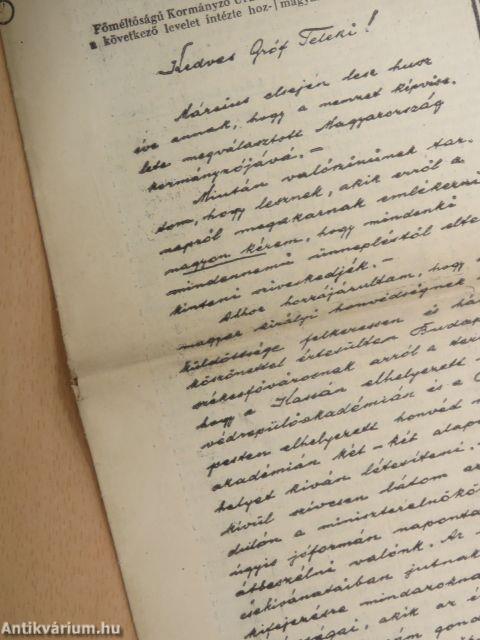 Főméltóságú Kormányzó
a következő levelet intézte hoz- magya
Kedves Gróf Teleki!
Március elsején lesz husz
éve annak, hogy a nemzet képvise-
lete megválasztott Magyarország
kormányzójává. –
Miután valószinünek tar-
tom, hogy lesznek, akik erről a
napról megakarnak emlékezni
nagyon kérem, hogy mindenki
mindennemü ünnepléstől elte-
kinteni sziveskedjék. –
Ahhoz hozzájárultam, hogy
magyar királyi honvédségnek
küldöttsége felkeressen és há
köszönettel értesültem Budap
székesfővárosnak arról a ter
hogy a Kassán elhelyezett
védrepülőakadémián és a
pesten elhelyezett honvéd
akadémián két-két alap
helyet kiván létesiteni.
kivül szivesen látom az
dulón a miniszterelnökö
úgyis jóformán naponta
átbeszélni valónk. Az
csekivánataiban jutnak
kifejezésre mindazoknak
ságai, akik az é
gond
Antikvárium.hu